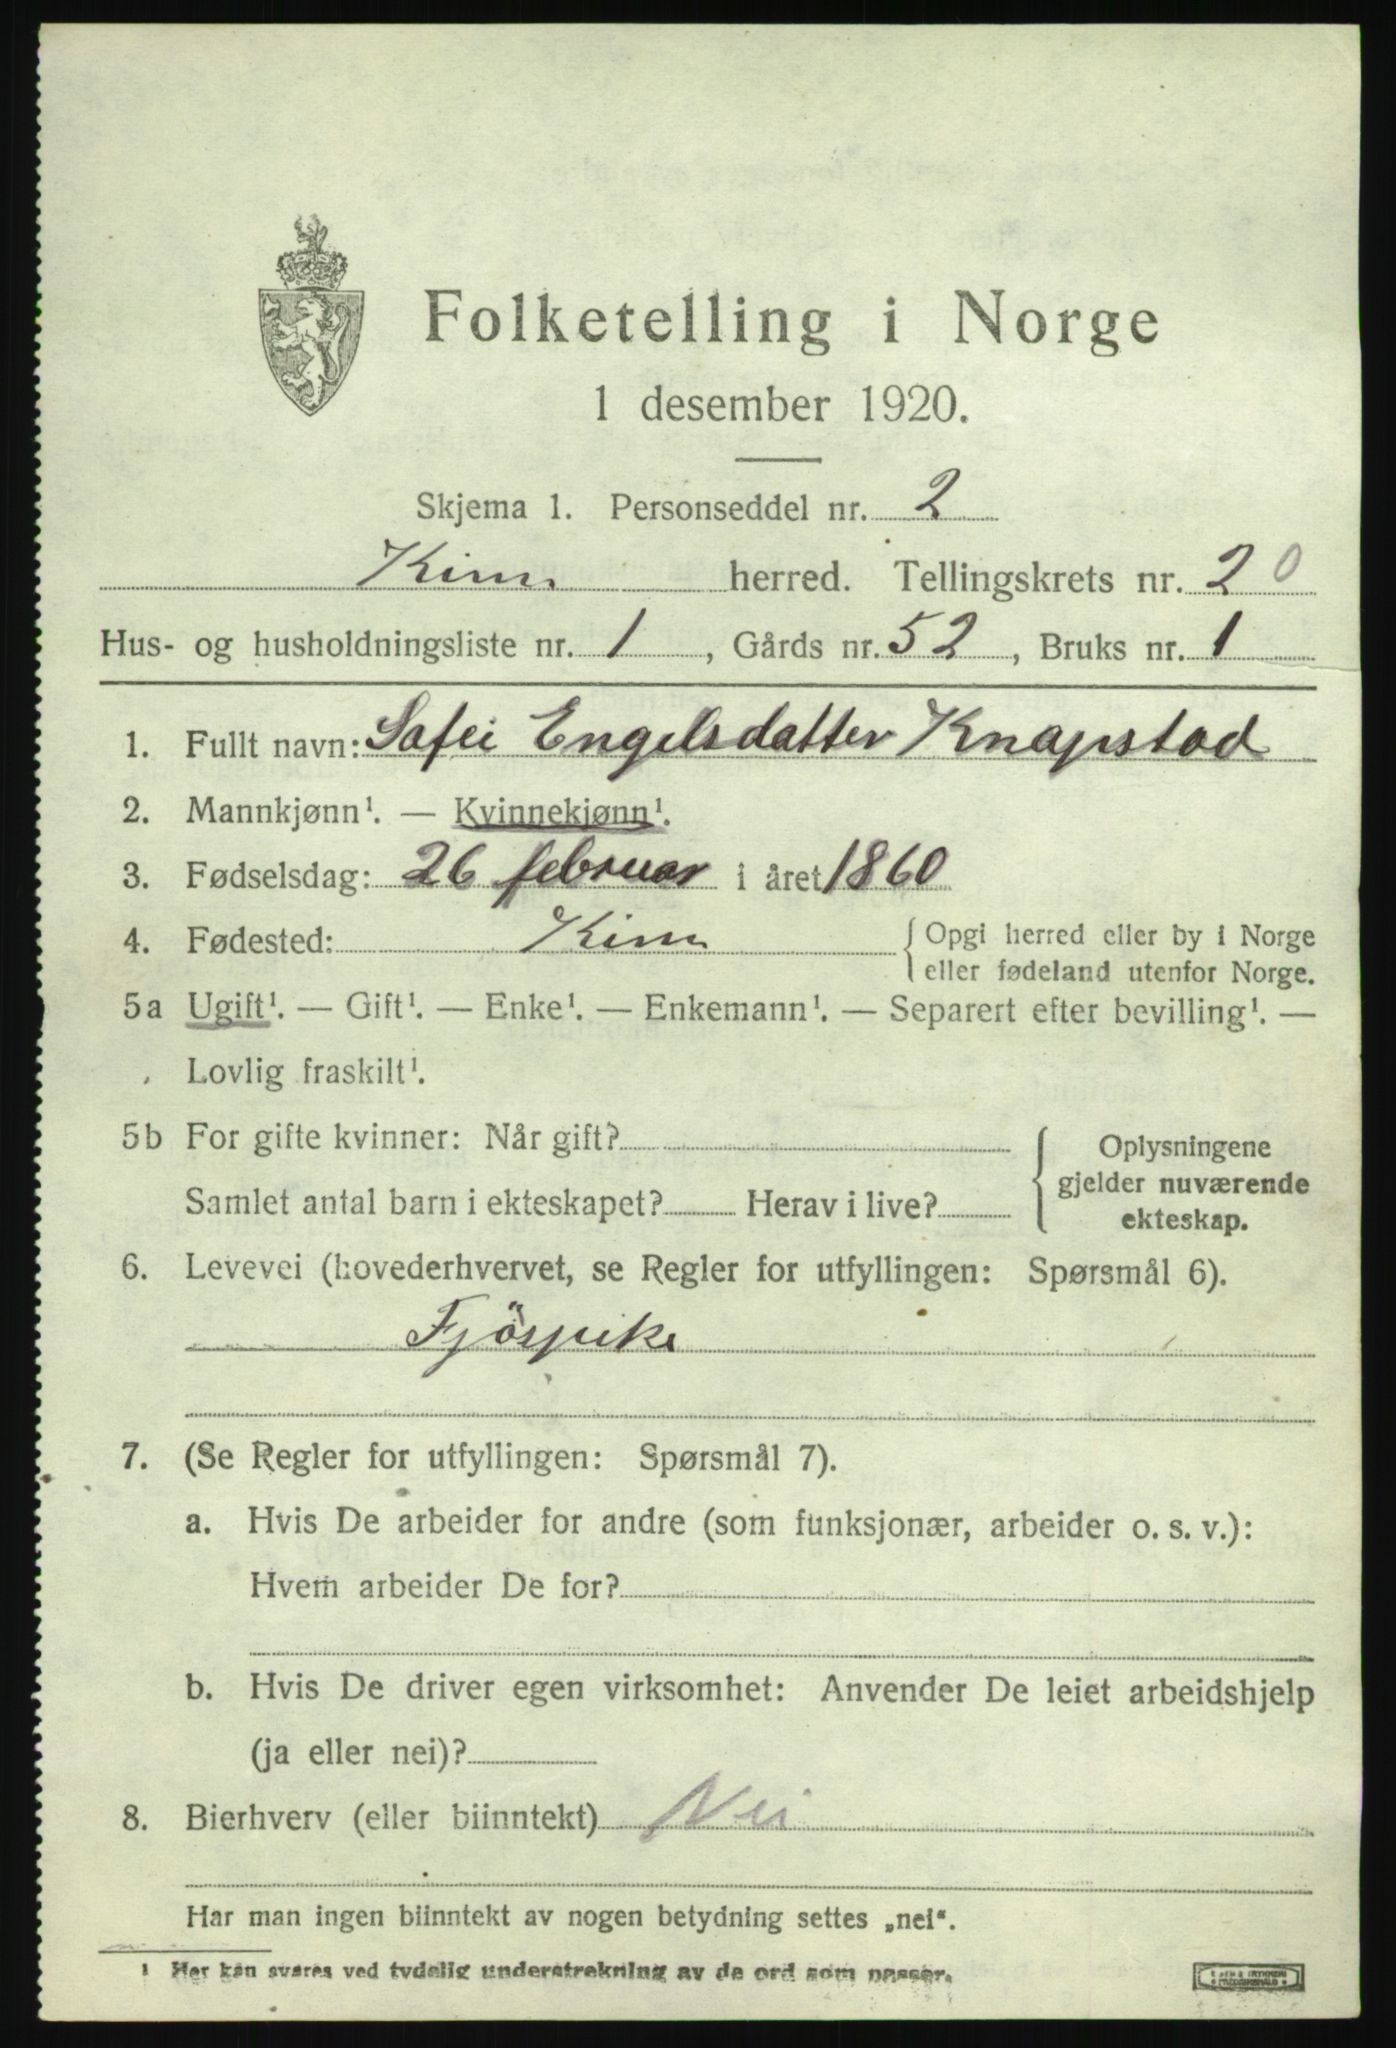 Folketelling i Norge
1 desember 1920.
Skjema 1. Personseddel nr. 2
Kinn herred. Tellingskrets nr. 20
Hus- og husholdningsliste nr. 1, Gårds nr. 52, Bruks nr. 1
1. Fullt navn: Safei Engelsdatter Knapstad
2. Mannkjønn¹. — Kvinnekjønn¹.
3. Fødselsdag: 26 februar i året 1860
4. Fødested: Kinn { Opgi herred eller by i Norge
eller fødeland utenfor Norge.
5a Ugift¹. — Gift¹. — Enke¹. — Enkemann¹. — Separert efter bevilling¹. —
Lovlig fraskilt¹.
5b For gifte kvinner: Når gift?
Samlet antal barn i ekteskapet? Herav i live?
{ Oplysningene
gjelder nuværende
ekteskap.
6. Levevei (hovederhvervet, se Regler for utfyllingen: Spørsmål 6).
Fjöspike
7. (Se Regler for utfyllingen: Spørsmål 7).
a. Hvis De arbeider for andre (som funksjonær, arbeider o. s. v.):
Hvem arbeider De for?
b. Hvis De driver egen virksomhet: Anvender De leiet arbeidshjelp
(ja eller nei)?
8. Bierhverv (eller biinntekt) Nei
Har man ingen biinntekt av nogen betydning settes „nei“.
¹ Her kan svares ved tydelig understrekning av de ord som passer.